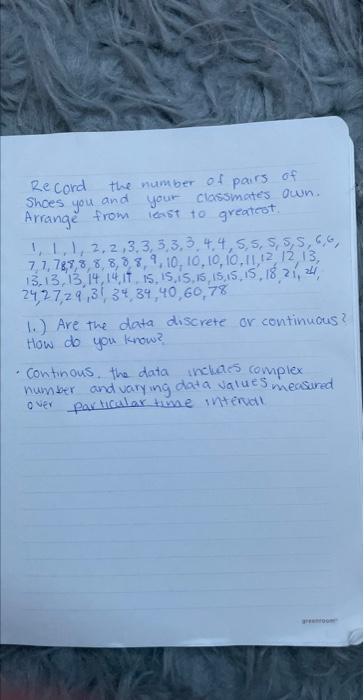 Record the number of pairs of
Shoes you and your classmates own.
Arrange from least to greatest.
1, 1, 1, 2, 2, 3, 3, 3, 3, 3, 4, 4, 5, 5, 5, 5, 5, 6, 6,
7, 7, 8, 8, 8, 8, 8, 8, 9, 10, 10, 10, 10, 11, 12, 12, 13,
13, 13, 13, 14, 14, 15, 15, 15, 15, 15, 15, 15, 18, 21, 24,
24, 27, 29, 31, 34, 34, 40, 60, 78
1.) Are the data discrete or continuous?
How do you know?
· Continous. the data includes complex
number and varying data values measured
over particular time interval
greenroom